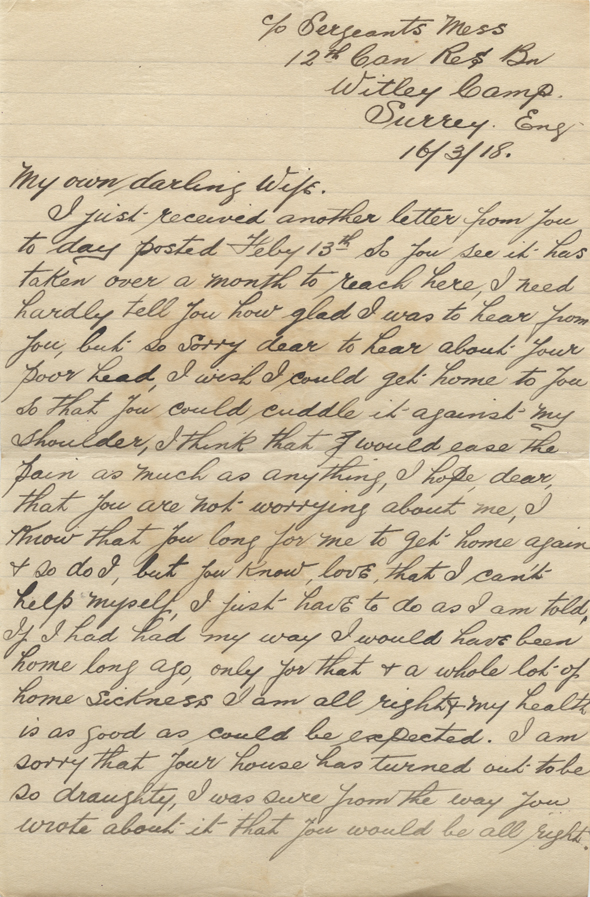 c/o Sergeants Mess
12th Can Res Bn
Witley Camp.
Surrey. Eng
16/3/18.
My own darling Wife.
I just received another letter from you
to day posted Feby 13th so you see it has
taken over a month to reach here, I need
hardly tell you how glad I was to hear from
you, but so sorry dear to hear about your
poor head, I wish I could get home to you
so that you could cuddle it against my
shoulder, I think that I would ease the
pain as much as anything, I hope, dear,
that you are not worrying about me, I
know that you long for me to get home again
& so do I, but you know, love, that I can't
help myself, I just have to do as I am told,
If I had had my way I would have been
home long ago, only for that & a whole lot of
home sickness I am all right & my health
is as good as could be expected. I am
sorry that your house has turned out to be
so draughty, I was sure from the way you
wrote about it that you would be all right.